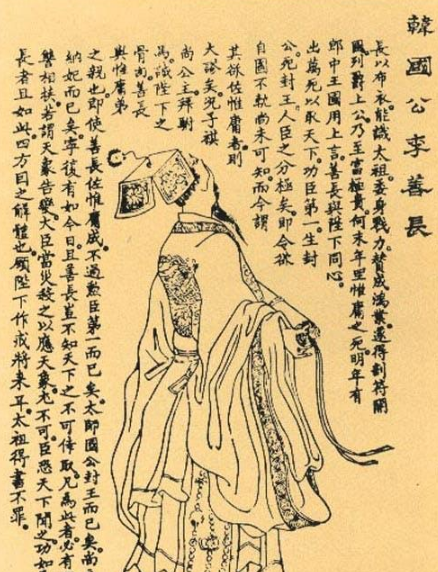 韓國公李善長
長以布衣能識太祖。委身戮力。贊成鴻業。遂得剖符開
國。列爵上公。乃至富極貴。何末年坐惟庸之死。明年有
郎中王國用上言。善長與陛下同心。
出萬死以取天下。功臣第一。生封
公。死封王。人臣之分極矣。即令欲
自圖不軌。尚未可知。而今謂
其欲佐惟庸者。則
大謬矣。況子祺
尚公主。拜駙
馬。誠陛下之
骨肉。善長
與惟庸。弟
之親也。即使善長佐惟庸成。不過勳臣第一而已矣。太師國公封王而已矣。尚
納妃而已矣。寧復有如今日。且善長豈不知天下之不可倖取。凡為此者。必有
讐相挾。若謂天象告變。大臣當災。殺之以應天象。尤不可。臣恐天下聞之。功如
長者且如此。四方因之解體也。願陛下作戒將來耳。太祖得書不罪。